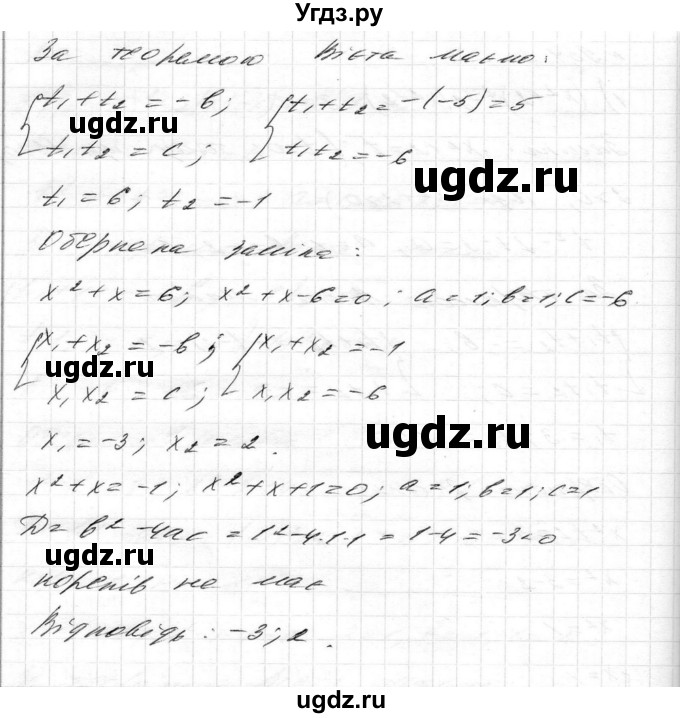 Угдз.ру
За теоремою Вієта маємо:
t₁ + t₂ = -b; t₁ + t₂ = -(-5) = 5
ugdz.ru
t₁t₂ = c; t₁t₂ = -6
ugdz.ru
t₁ = 6; t₂ = -1
Обернена заміна:
x² + x = 6; x² + x - 6 = 0; a = 1; b = 1; c = -6
x₁ + x₂ = -b; x₁ + x₂ = -1
ugdz.ru
x₁x₂ = c; x₁x₂ = -6
x₁ = -3; x₂ = 2.
ugdz.ru
x² + x = -1; x² + x + 1 = 0; a = 1; b = 1; c = 1
D = b² - 4ac = 1² - 4·1·1 = 1 - 4 = -3 < 0
ugdz.ru
коренів не має
Відповідь: -3; 2.
ugdz.ru
ugdz.ru